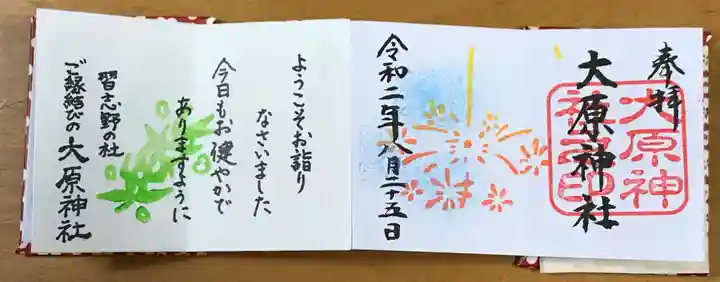 奉拝
大原神社
大原神
社之印
令和二年八月二十五日
ようこそお詣り
なさいました
今日もお健やかで
ありますように
習志野の社
ご縁結びの大原神社